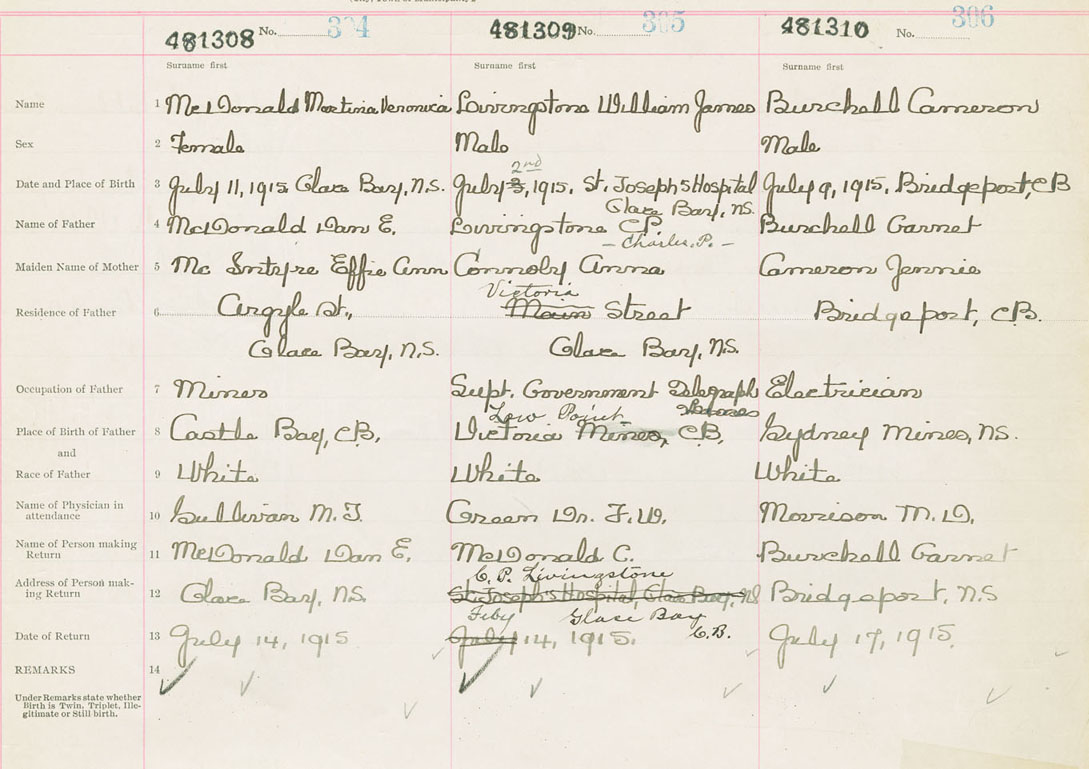 481308 No. 304 481309 No. 305 481310 No. 306
Surname first Surname first Surname first
Name 1 McDonald Martina Veronica Livingstone William James Burchell Cameron
Sex 2 Female Male Male
2nd
Date and Place of Birth 3 July 11, 1915 Glace Bay, N.S. July 3, 1915. St. Joseph's Hospital July 9, 1915, Bridgeport, CB
Glace Bay, NS.
Name of Father 4 McDonald Dan E. Livingstone C.P. Burchell Garnet
- Charles, P. -
Maiden Name of Mother 5 Mc Intyre Effie Ann Connoly Anna Cameron Jennie
Victoria
Residence of Father 6 Argyle St., Main Street Bridgeport, C.B.
Glace Bay, N.S. Glace Bay, N.S.
Occupation of Father 7 Miner Supt. Government Telegraph Electrician
Low Point
Place of Birth of Father 8 Castle Bay, C.B. Victoria Mines, C.B. Sydney Mines, NS.
and
Race of Father 9 White White White
Name of Physician in
attendance 10 Sullivan M.T. Green Dr. F.W. Morrison M.D.
Name of Person making
Return 11 McDonald Dan E. McDonald C. Burchell Garnet
C. P. Livingstone
Address of Person mak-
ing Return 12 Glace Bay, N.S. St. Joseph's Hospital, Glace Bay, NS Bridgeport, N.S
Feby Glace Bay
Date of Return 13 July 14, 1915 July 14, 1915. C.B. July 17, 1915.
REMARKS 14
Under Remarks state whether
Birth is Twin, Triplet, Ille-
gitimate or Still birth.